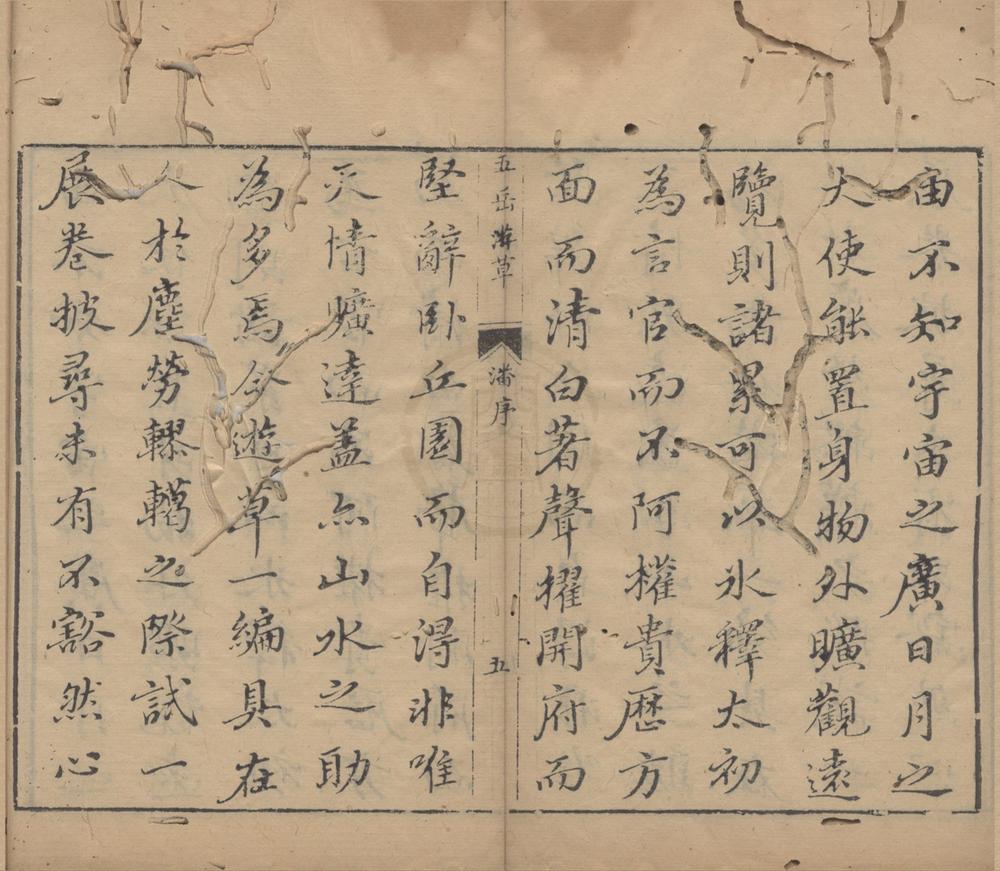 宙不知宇宙之廣日月之
大使能置身物外曠觀遠
覽則諸累可以氷釋太初
為言官而不阿權貴歷方
面而清白著聲擢開府而
五岳游草 潘序 五
堅辭卧丘園而自得非唯
天情曠達蓋亦山水之助
為多焉今遊草一編具在
人於塵勞轇轕之際試一
展卷披尋未有不豁然心